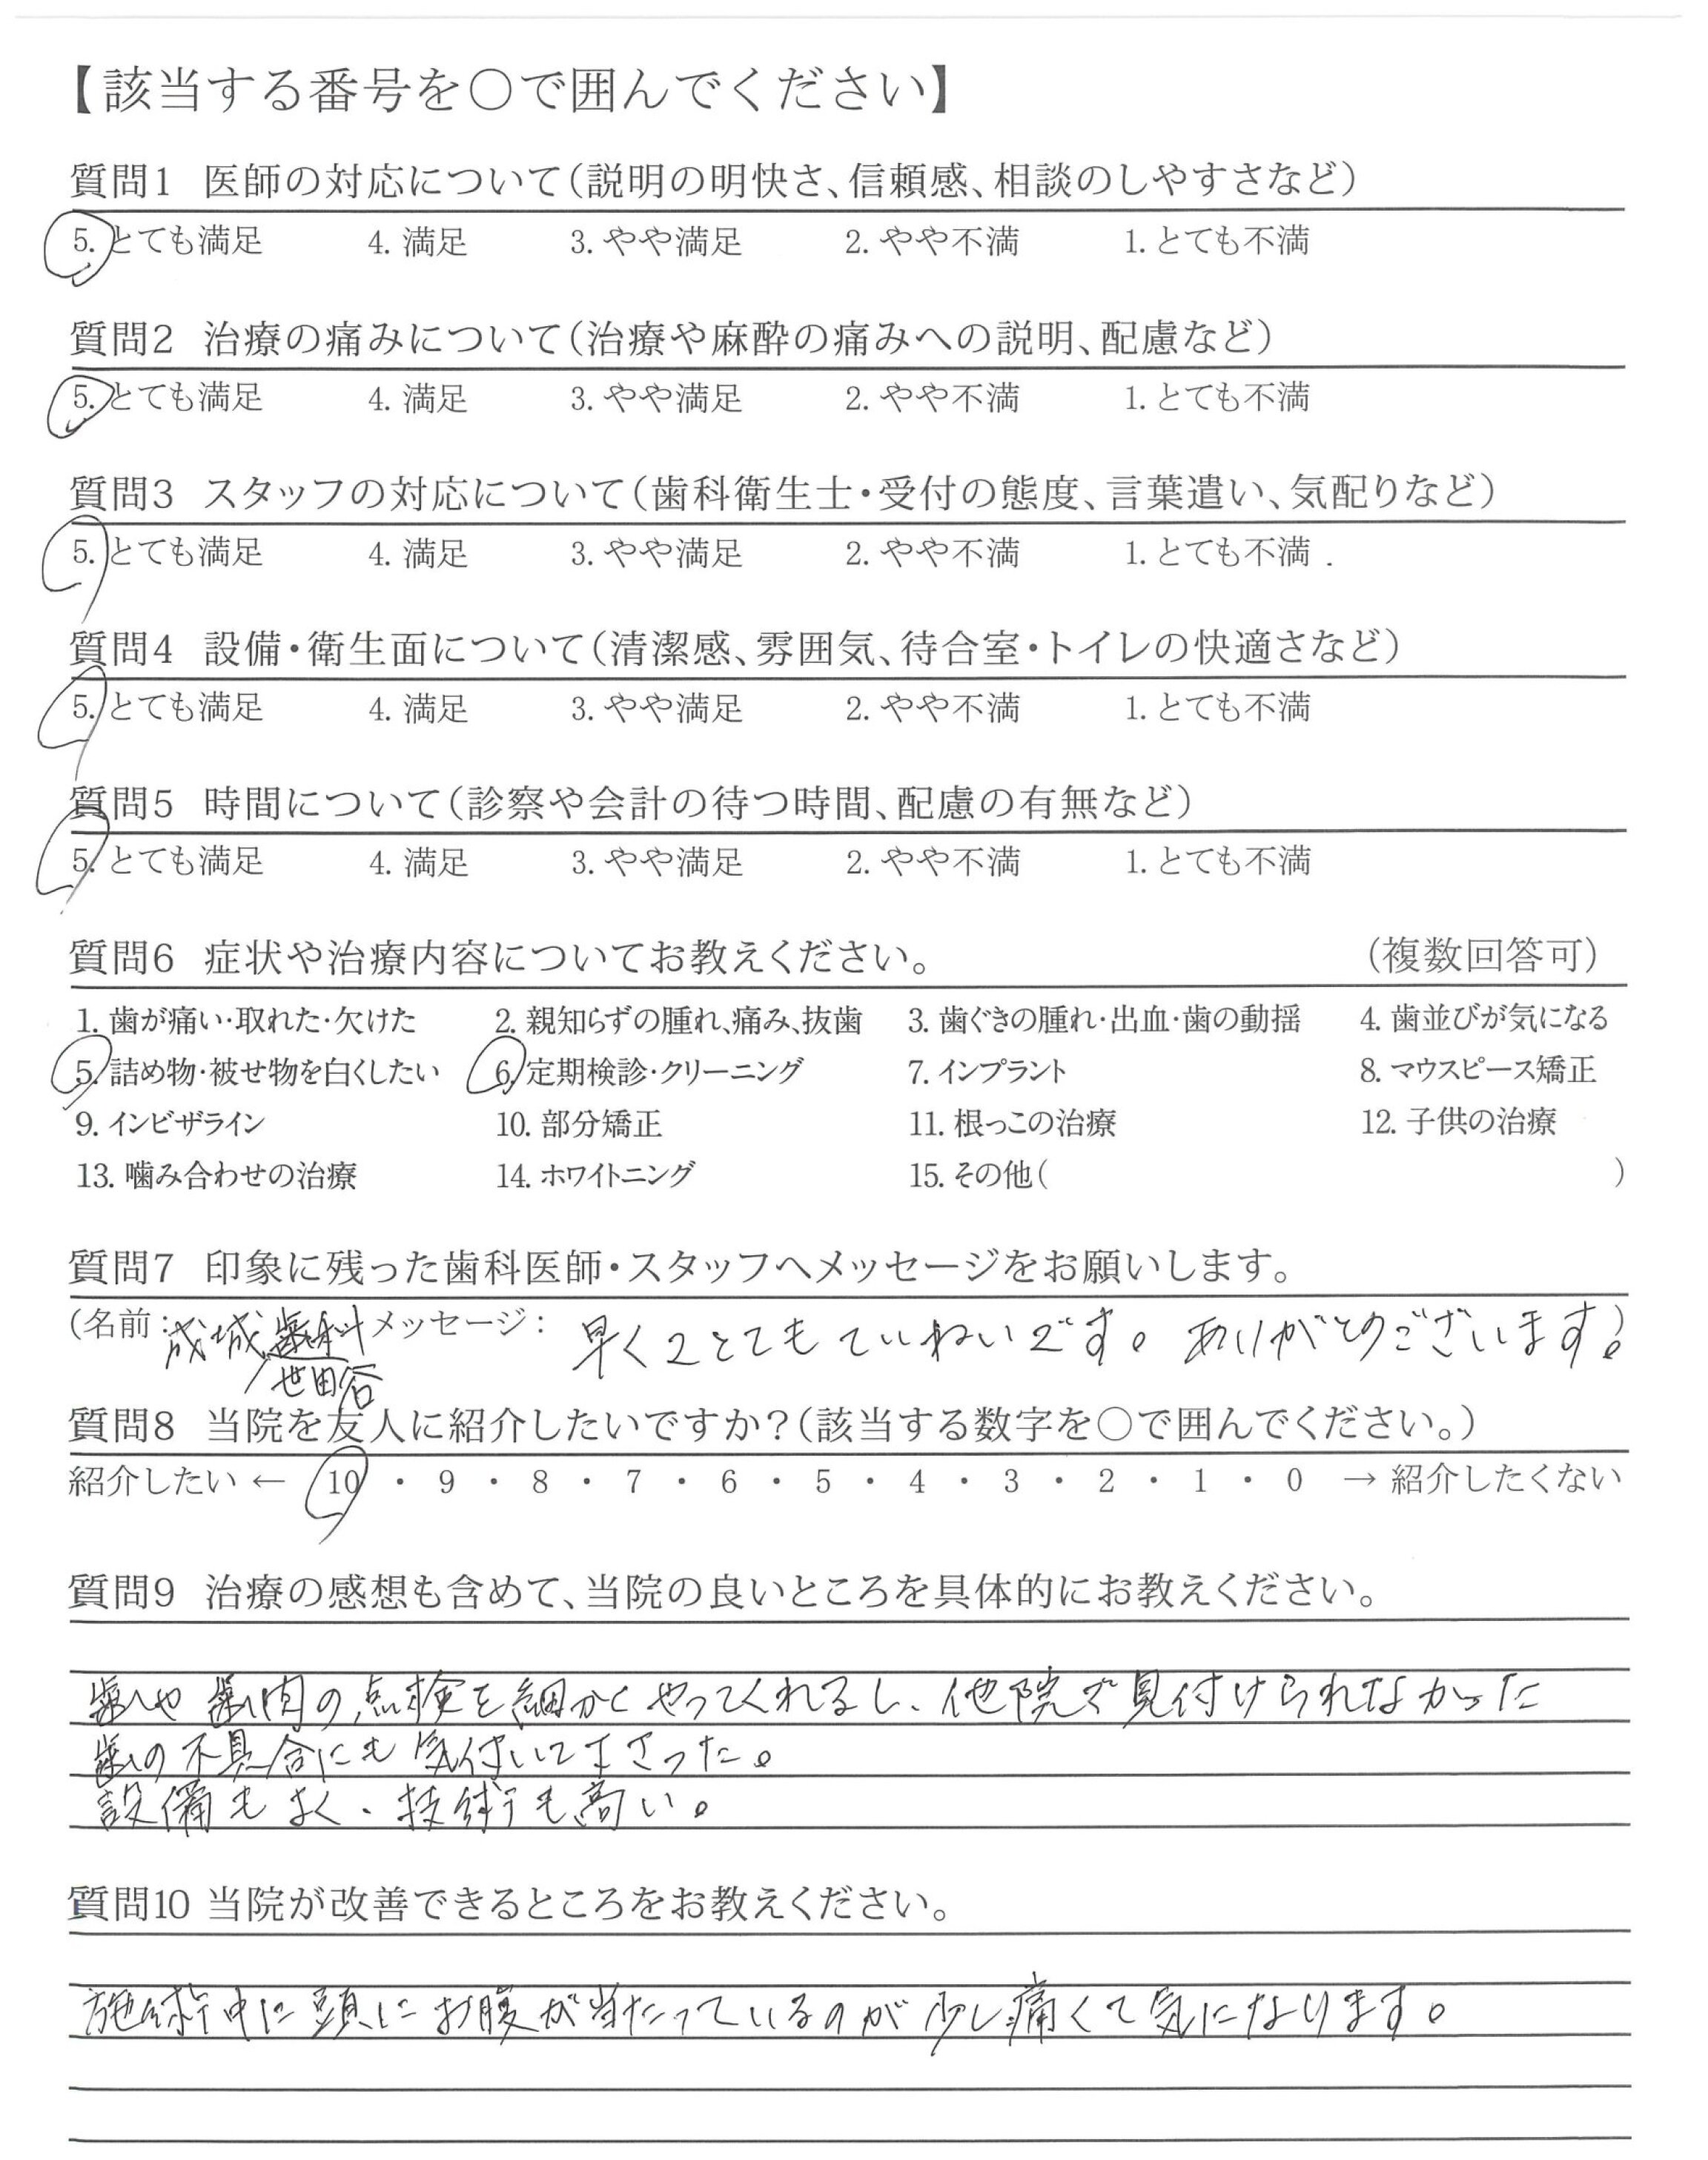 【該当する番号を○で囲んでください】
質問1 医師の対応について（説明の明快さ、信頼感、相談のしやすさなど）
5. とても満足 4. 満足 3. やや満足 2. やや不満 1. とても不満
質問2 治療の痛みについて（治療や麻酔の痛みへの説明、配慮など）
5. とても満足 4. 満足 3. やや満足 2. やや不満 1. とても不満
質問3 スタッフの対応について（歯科衛生士・受付の態度、言葉遣い、気配りなど）
5. とても満足 4. 満足 3. やや満足 2. やや不満 1. とても不満
質問4 設備・衛生面について（清潔感、雰囲気、待合室・トイレの快適さなど）
5. とても満足 4. 満足 3. やや満足 2. やや不満 1. とても不満
質問5 時間について（診察や会計の待つ時間、配慮の有無など）
5. とても満足 4. 満足 3. やや満足 2. やや不満 1. とても不満
質問6 症状や治療内容についてお教えください。 （複数回答可）
1. 歯が痛い・取れた・欠けた 2. 親知らずの腫れ、痛み、抜歯 3. 歯ぐきの腫れ・出血・歯の動揺 4. 歯並びが気になる
5. 詰め物・被せ物を白くしたい 6. 定期検診・クリーニング 7. インプラント 8. マウスピース矯正
9. インビザライン 10. 部分矯正 11. 根っこの治療 12. 子供の治療
13. 噛み合わせの治療 14. ホワイトニング 15. その他（ ）
質問7 印象に残った歯科医師・スタッフへメッセージをお願いします。
（名前：成城歯科 メッセージ： 早くてとてもていねいです。ありがとうございます。）
世田谷
質問8 当院を友人に紹介したいですか？（該当する数字を○で囲んでください。）
紹介したい ← 10 ・ 9 ・ 8 ・ 7 ・ 6 ・ 5 ・ 4 ・ 3 ・ 2 ・ 1 ・ 0 → 紹介したくない
質問9 治療の感想も含めて、当院の良いところを具体的にお教えください。
歯や歯肉の点検を細かくやってくれるし、他院で見付けられなかった
歯の不具合にも気付いて下さった。
設備もよく、技術も高い。
質問10 当院が改善できるところをお教えください。
施術中に頭にお腹が当たっているのが少し痛くて気になります。